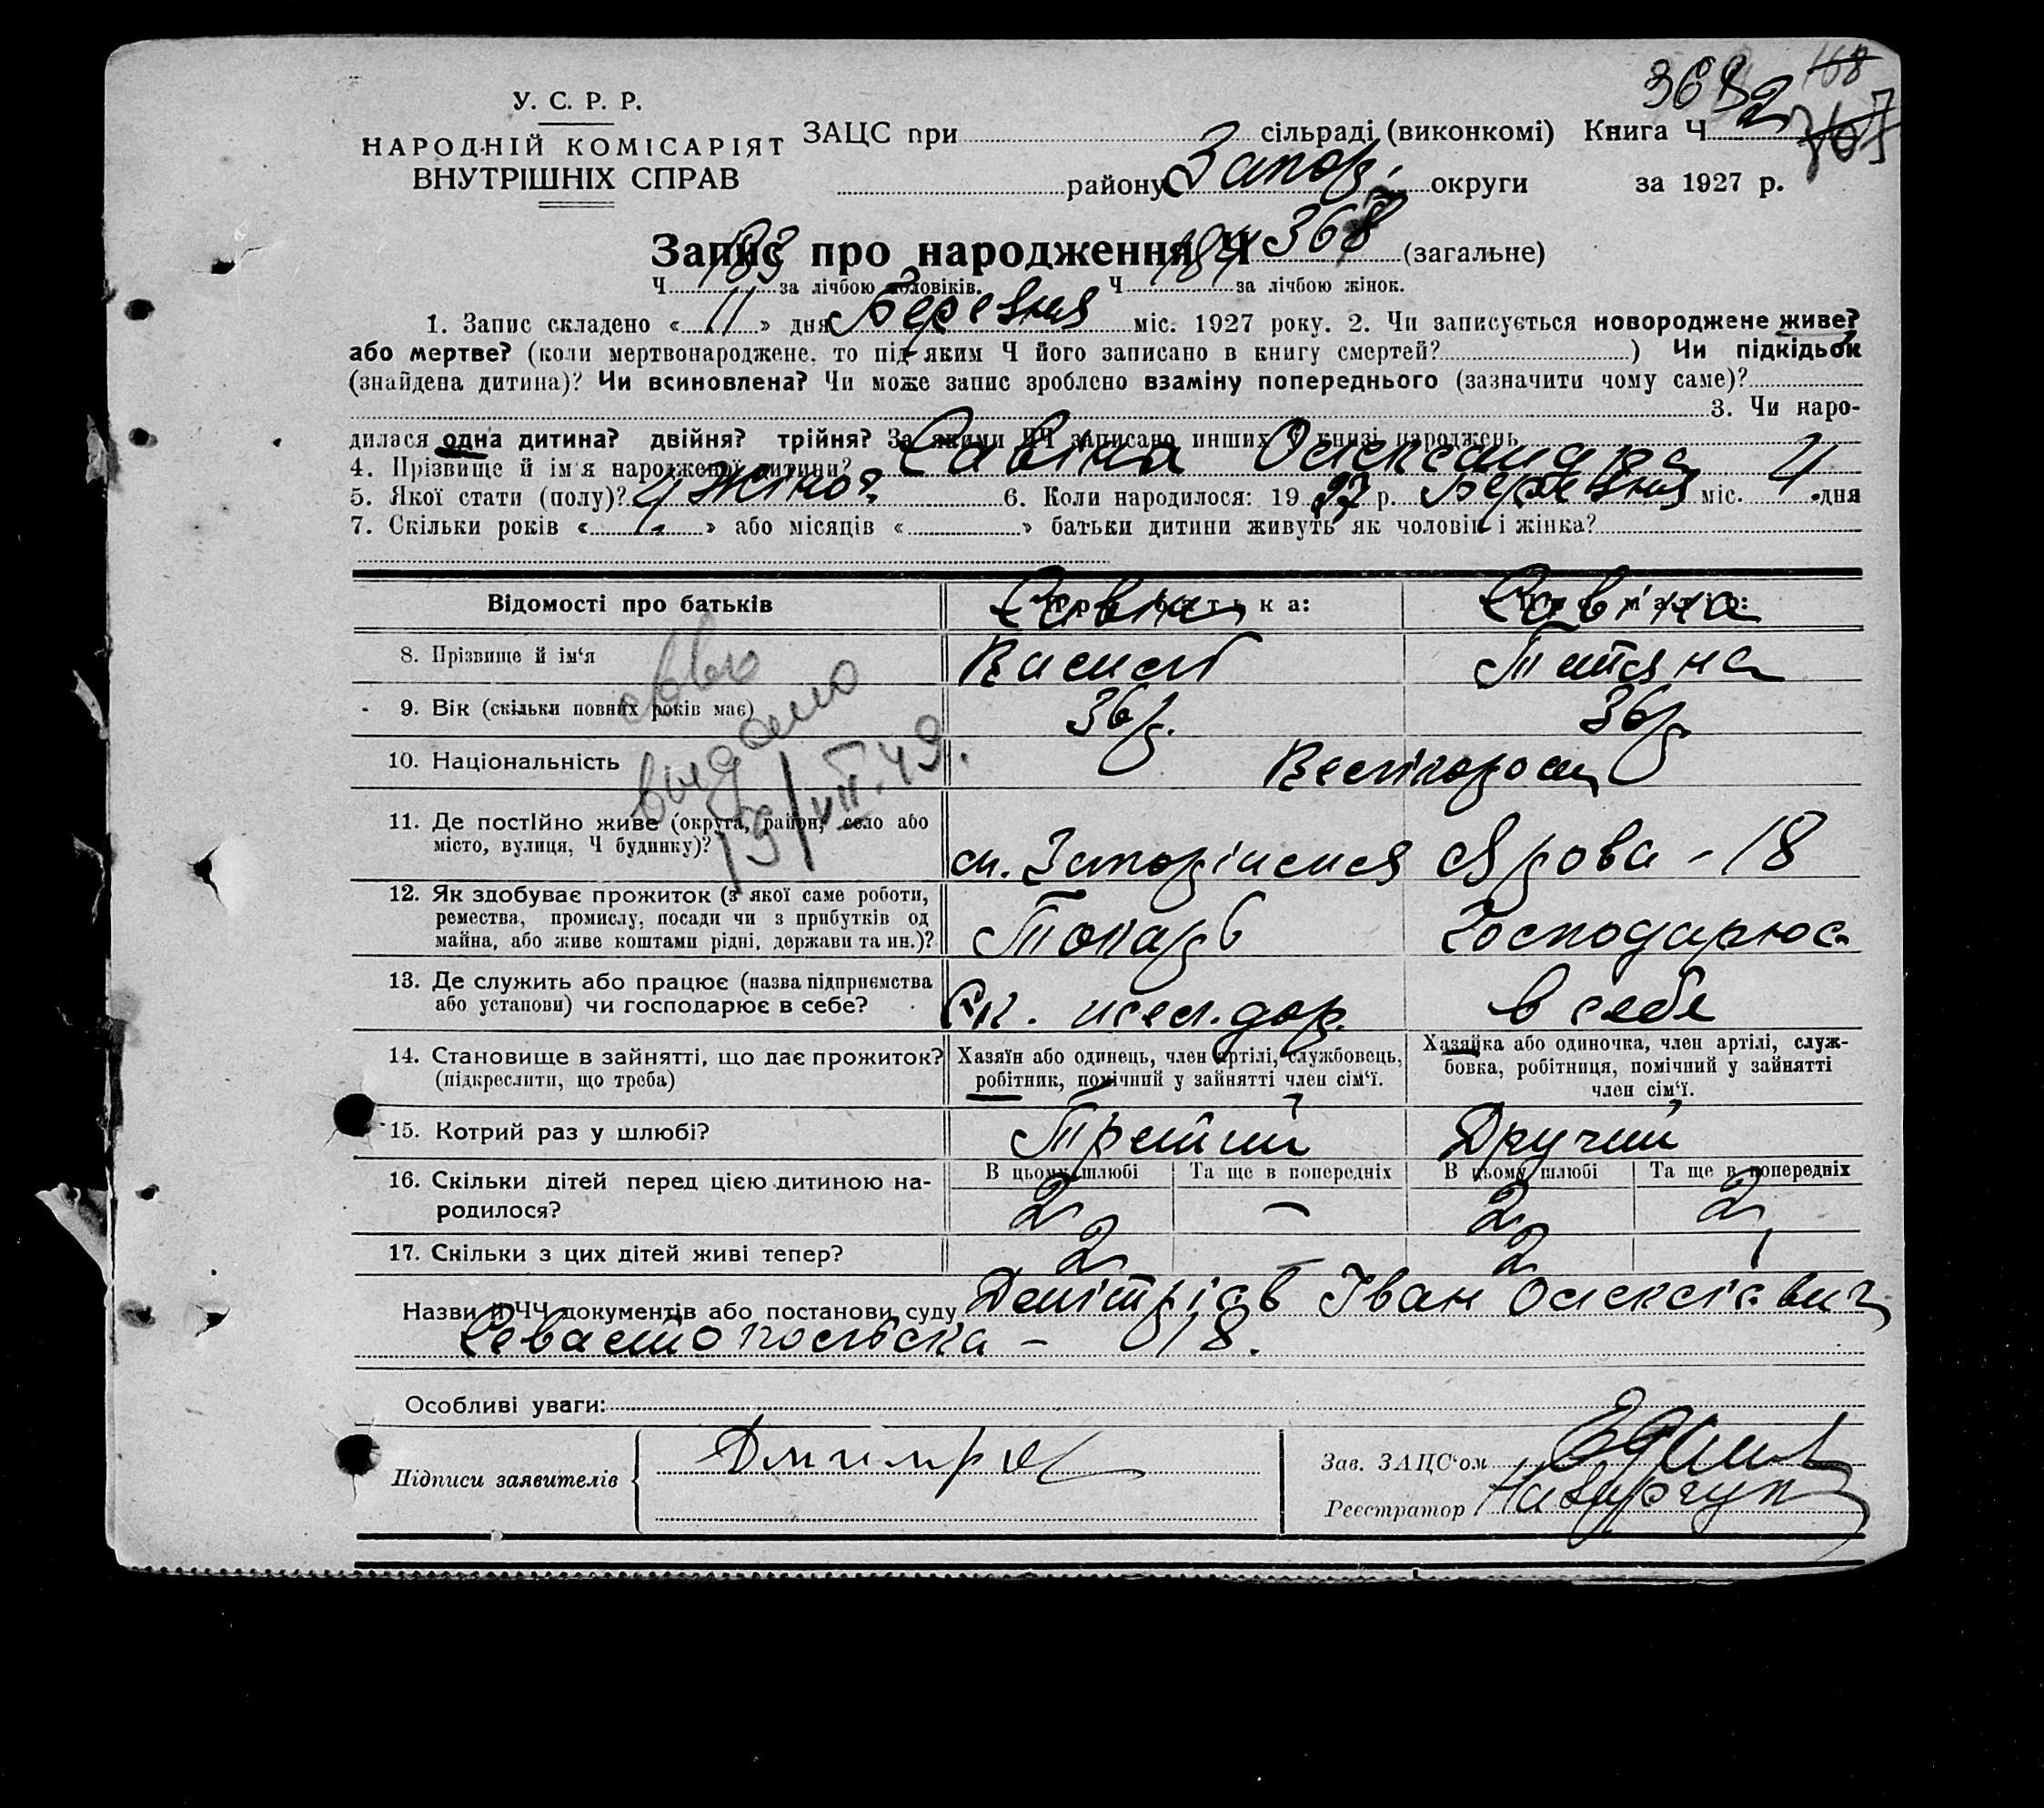 У. С. Р. Р.
НАРОДНІЙ КОМІСАРІЯТ
ВНУТРІШНІХ СПРАВ
368 168
ЗАЦС при сільраді (виконкомі) Книга Ч 2
району Запор. округи за 1927 р.
Запис про народження Ч 368 (загальне)
Ч 183 за лічбою чоловіків. Ч 184 за лічбою жінок.
1. Запис складено « 11 » дня Березня міс. 1927 року. 2. Чи записується новороджене живе?
або мертве? (коли мертвонароджене, то під яким Ч його записано в книгу смертей? ) Чи підкідьок
(знайдена дитина)? Чи всиновлена? Чи може запис зроблено взаміну попереднього (зазначити чому саме)?
3. Чи наро-
дилася одна дитина? двійня? трійня? За якими ЧЧ записано инших у книзі народжень
4. Прізвище й ім'я народженої дитини? Савіна Олександра
5. Якої стати (полу)? Жіноч. 6. Коли народилося: 1927 р. Березня міс. 4 дня
7. Скільки років « 4 » або місяців « » батьки дитини живуть як чоловік і жінка?
Відомості про батьків Про батька: Про матір:
Савін Савіна
8. Прізвище й ім'я Василь Тетяна
9. Вік (скільки повних років має) 36 р. 36 р.
10. Національність Велікороси
видано
19/VII.49.
11. Де постійно живе (округа, район, село або
місто, вулиця, Ч будинку)? м. Запоріжжя Ярова - 18
12. Як здобуває прожиток (з якої саме роботи,
ремества, промислу, посади чи з прибутків од
майна, або живе коштами рідні, держави та ин.)? Токарь Господарює
13. Де служить або працює (назва підприємства
або установи) чи господарює в себе? дор. в себе
14. Становище в зайнятті, що дає прожиток?
(підкреслити, що треба)
Хазяїн або одинець, член артілі, службовець,
робітник, помічний у зайнятті член сім'ї.
Хазяйка або одиночка, член артілі, служ-
бовка, робітниця, помічний у зайнятті
член сім'ї.
15. Котрий раз у шлюбі? Третий Другий
В цьому шлюбі Та ще в попередніх В цьому шлюбі Та ще в попередніх
16. Скільки дітей перед цією дитиною на-
родилося? 2 – 2 2
17. Скільки з цих дітей живі тепер? 2 – 2 1
Назви й ЧЧ документів або постанови суду Іван Олексієвич
Севастопольська - 18.
Особливі уваги:
Підписи заявителів
Зав. ЗАЦС'ом
Реєстратор